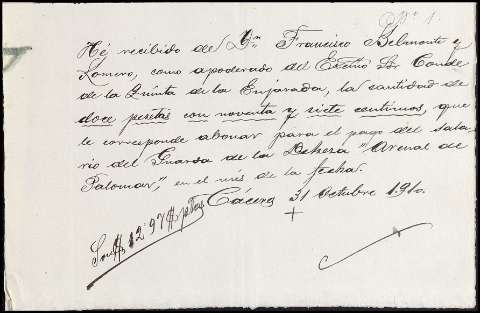 Nº 1.
Hé recibido de Dn Francisco Belmonte y
Romero, como apoderado del Excmo Sr Conde
de la Quinta de la Enjarada, la cantidad de
doce pesetas con noventa y siete centimos, que
le corresponde abonar para el pago del sala
rio del Guarda de la Dehesa "Arenal de
Palomar", en el més de la fecha.
Cáceres 31 Octubre 1910.
Son # 12'97 # ptas